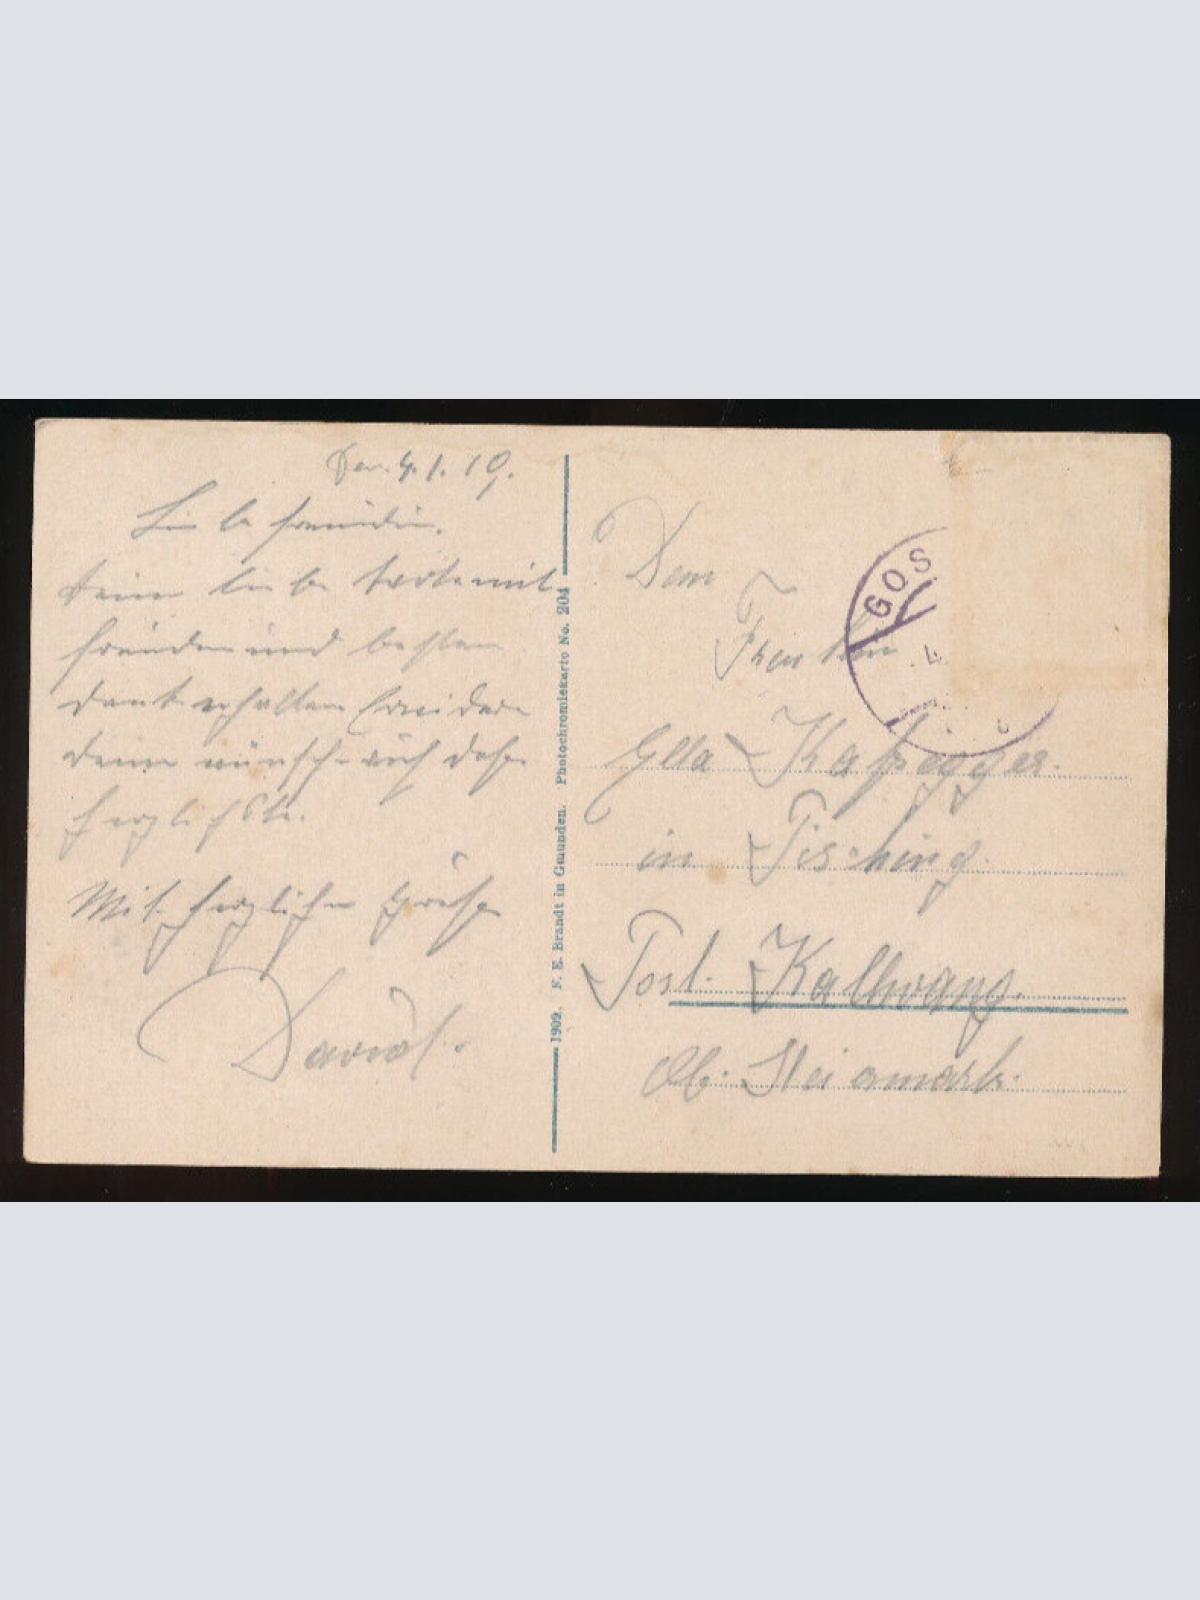 Den 4. 1. 10.
Liebe freundin.
deine liebe karte mit
freuden und besten
dank erhalten Erwidere
deine wünsche auch aufs
herzlichste.
Mit herzlichen Grüße
David.
1909. F. E. Brandt in Gmunden. Photochromiekarte No. 204
Dem
Freulein
GOS
4
Ella Kaßegger.
in Pisching.
Post. Kallwang.
Ob. Steiamark.